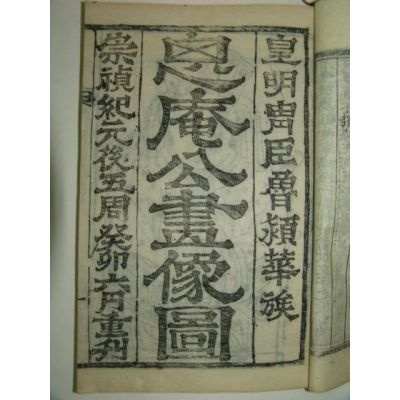 皇明胄臣潁華族
恖庵公畫像圖
崇禎紀元後五周癸卯六月重刊